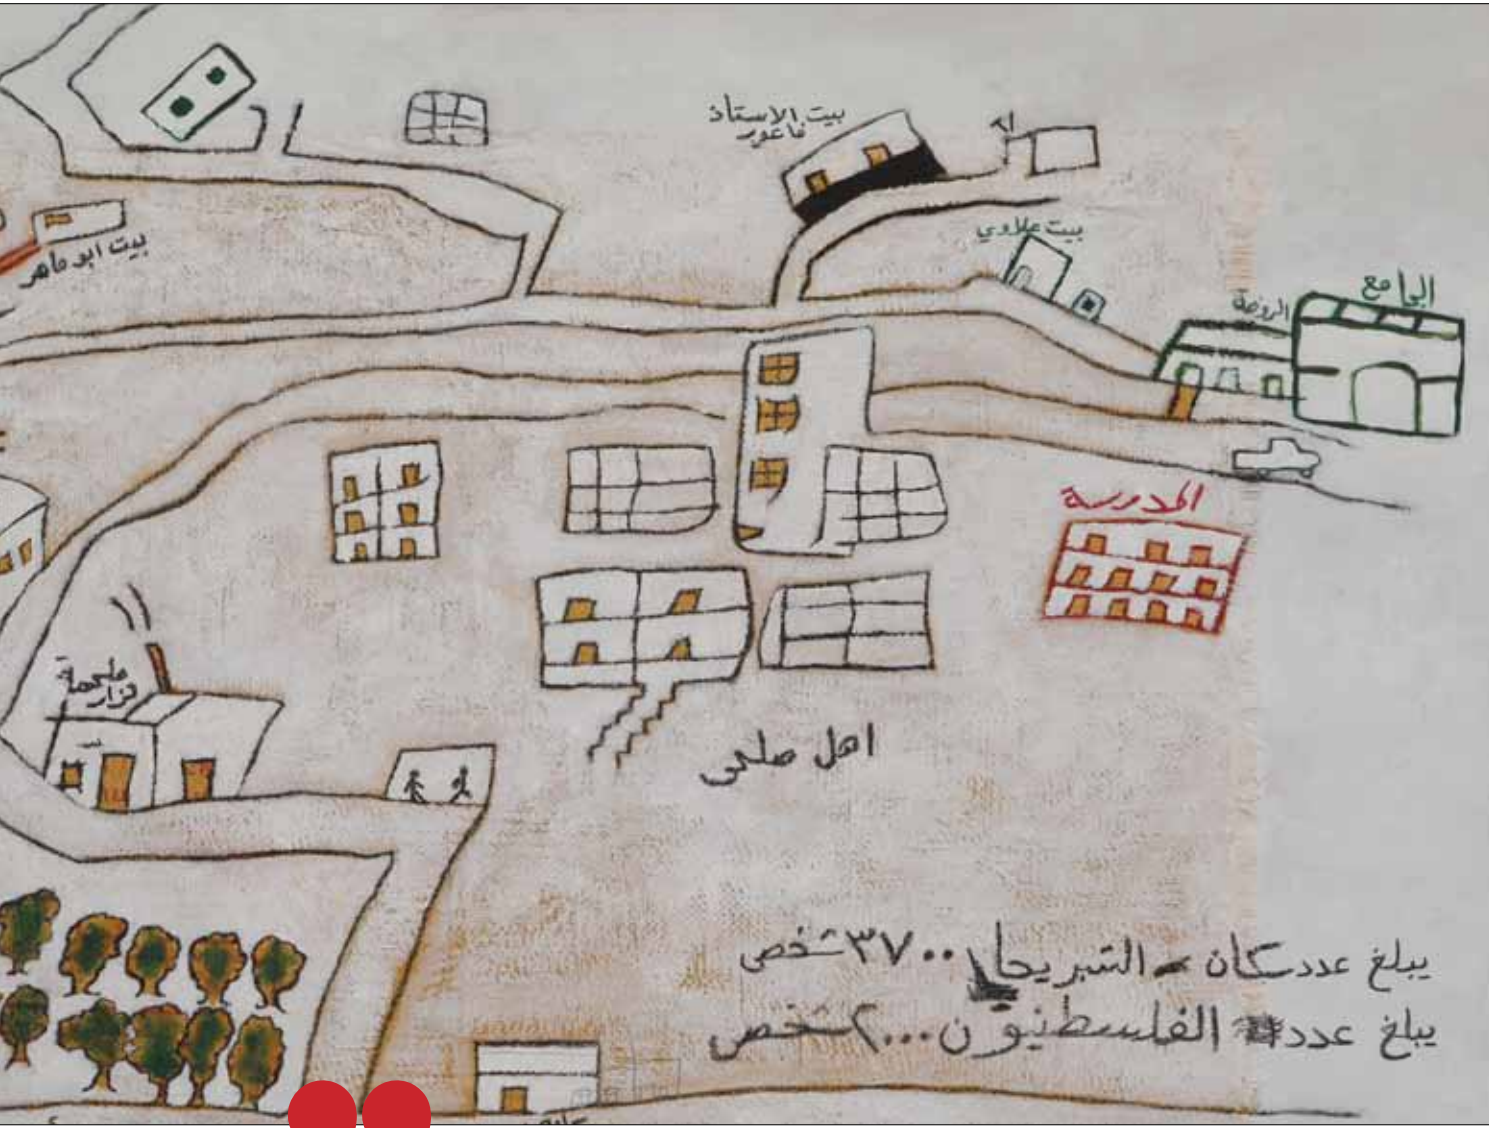 بيت الاستاذ
فاعور
بيت علاوي
الجامع
الروضة
بيت ابو ماهر
المدرسة
ملحمة
نزار
اهل صلحى
يبلغ عدد سكان الشبريحا ٣٧٠٠ شخص
يبلغ عدد الفلسطنيون ٢٠٠٠ شخص